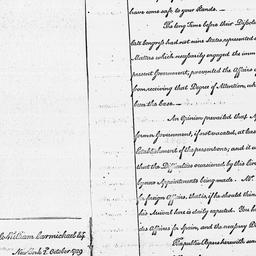 have come safe to your Hands.
The long Time before their Dissol
late Congress had not nine States, represented o
Matters which necessarily engaged the imm
present Government, prevented the Affairs o
from receiving that Degree of Attention, wh
been the Case.
An Opinion prevailed that
former Government, if not vacated, at leas
Establishment of the present one; and it
that the Difficulties occasioned by this Cir
by new Appointments being made. Mr.
for foreign Affairs, that is, if he should thin
his Arrival here is daily expected. You ha
des Affaires for Spain, and the necessary
The public Papers herewith
William Carmichael Esq
New York October 1789